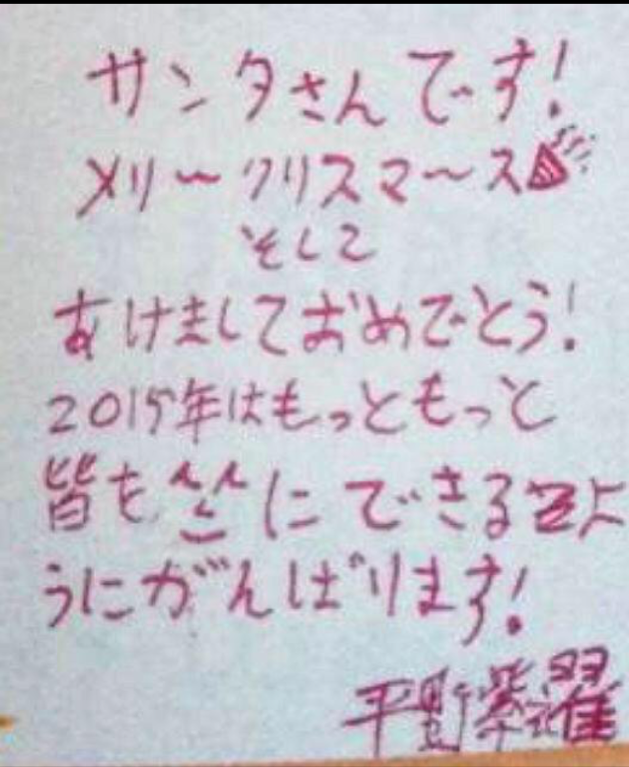 サンタさんです!
メリ〜クリスマ〜ス
そして
あけましておめでとう!
2015年はもっともっと
皆を にできるよ
うにがんばります!
平野紫耀